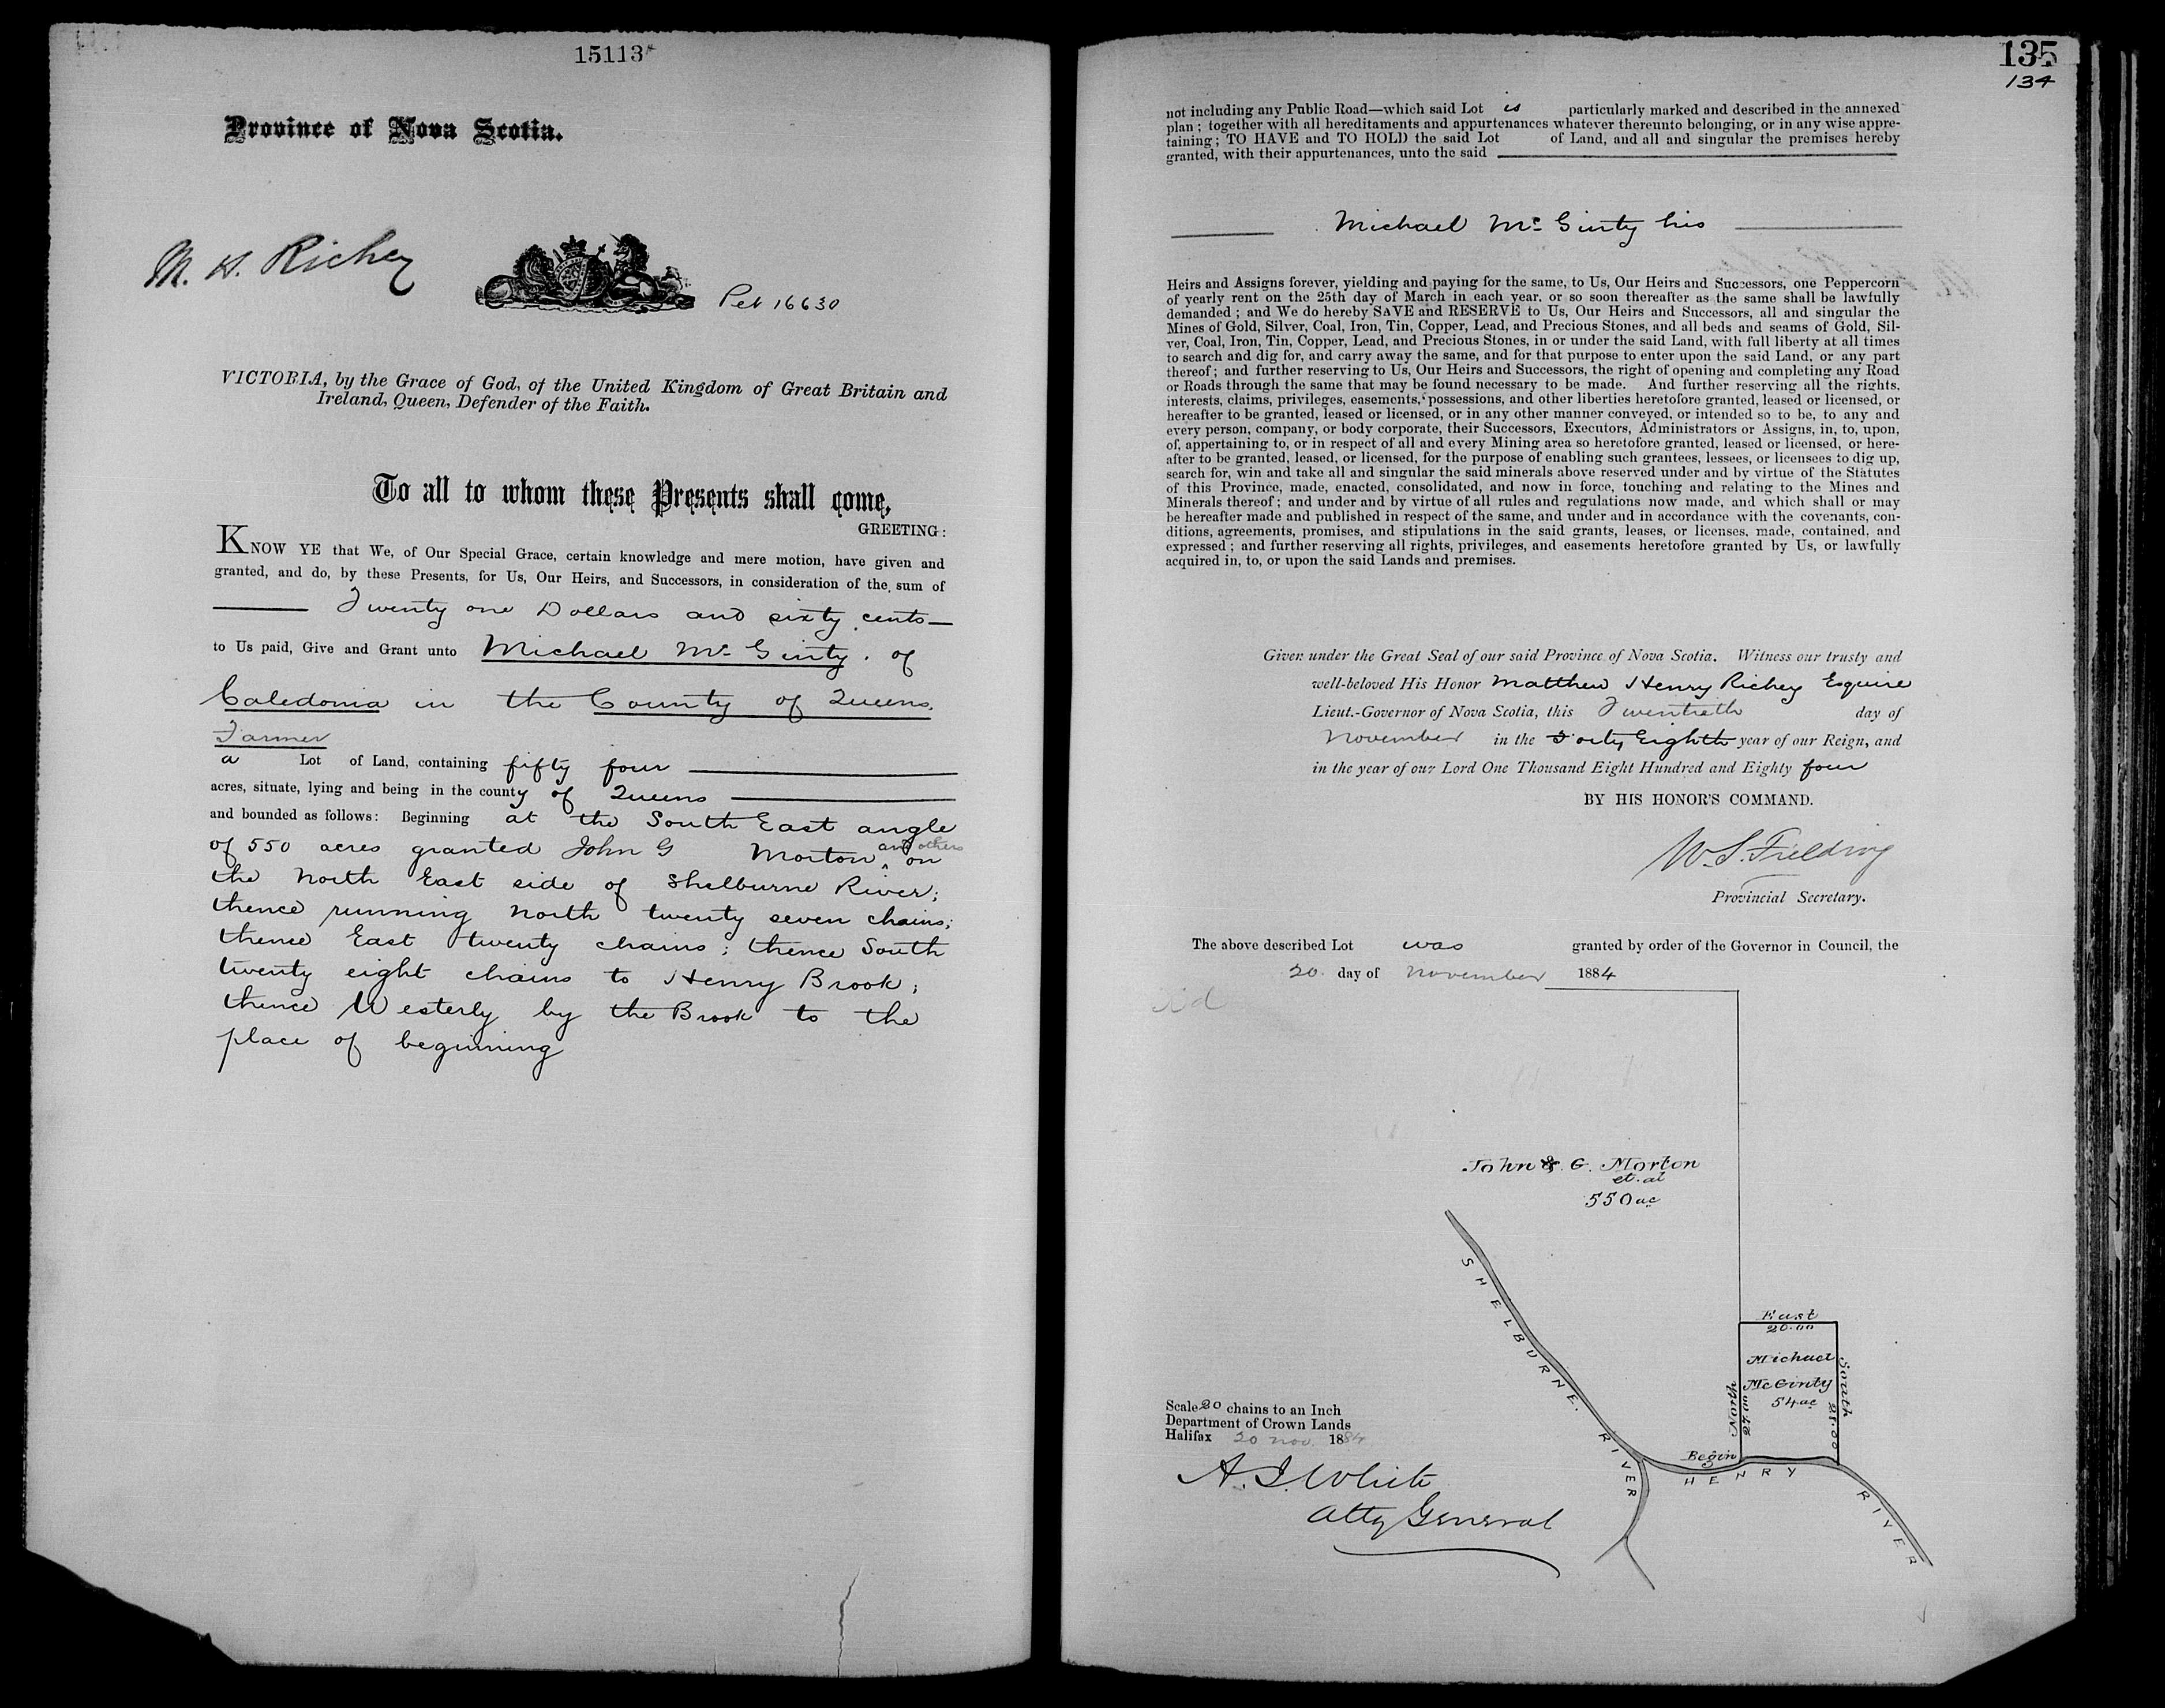 15113
Province of Nova Scotia.
M. H. Richey
Pet 16630
VICTORIA, by the Grace of God, of the United Kingdom of Great Britain and
Ireland, Queen, Defender of the Faith.
To all to whom these Presents shall come,
GREETING:
KNOW YE that We, of Our Special Grace, certain knowledge and mere motion, have given and
granted, and do, by these Presents, for Us, Our Heirs, and Successors, in consideration of the sum of
Twenty one Dollars and sixty cents
to Us paid, Give and Grant unto Michael Mc Ginty. of
Caledonia in the County of Queens.
Farmer
a Lot of Land, containing fifty four
acres, situate, lying and being in the county of Queens
and bounded as follows: Beginning at the South East angle
of 550 acres granted John G Morton and others on
the North East side of Shelburne River;
thence running North twenty seven chains;
thence East twenty chains; thence South
twenty eight chains to Henry Brook;
thence Westerly by the Brook to the
place of beginning
135
134
not including any Public Road—which said Lot is particularly marked and described in the annexed
plan; together with all hereditaments and appurtenances whatever thereunto belonging, or in any wise appre-
taining; TO HAVE and TO HOLD the said Lot of Land, and all and singular the premises hereby
granted, with their appurtenances, unto the said
Michael Mc Ginty his
Heirs and Assigns forever, yielding and paying for the same, to Us, Our Heirs and Successors, one Peppercorn
of yearly rent on the 25th day of March in each year, or so soon thereafter as the same shall be lawfully
demanded; and We do hereby SAVE and RESERVE to Us, Our Heirs and Successors, all and singular the
Mines of Gold, Silver, Coal, Iron, Tin, Copper, Lead, and Precious Stones, and all beds and seams of Gold, Sil-
ver, Coal, Iron, Tin, Copper, Lead, and Precious Stones, in or under the said Land, with full liberty at all times
to search and dig for, and carry away the same, and for that purpose to enter upon the said Land, or any part
thereof; and further reserving to Us, Our Heirs and Successors, the right of opening and completing any Road
or Roads through the same that may be found necessary to be made. And further reserving all the rights,
interests, claims, privileges, easements, possessions, and other liberties heretofore granted, leased or licensed, or
hereafter to be granted, leased or licensed, or in any other manner conveyed, or intended so to be, to any and
every person, company, or body corporate, their Successors, Executors, Administrators or Assigns, in, to, upon,
of, appertaining to, or in respect of all and every Mining area so heretofore granted, leased or licensed, or here-
after to be granted, leased, or licensed, for the purpose of enabling such grantees, lessees, or licensees to dig up,
search for, win and take all and singular the said minerals above reserved under and by virtue of the Statutes
of this Province, made, enacted, consolidated, and now in force, touching and relating to the Mines and
Minerals thereof; and under and by virtue of all rules and regulations now made, and which shall or may
be hereafter made and published in respect of the same, and under and in accordance with the covenants, con-
ditions, agreements, promises, and stipulations in the said grants, leases, or licenses, made, contained, and
expressed; and further reserving all rights, privileges, and easements heretofore granted by Us, or lawfully
acquired in, to, or upon the said Lands and premises.
Given under the Great Seal of our said Province of Nova Scotia. Witness our trusty and
well-beloved His Honor Matthew Henry Richey Esquire
Lieut.-Governor of Nova Scotia, this Twentieth day of
November in the Forty Eighth year of our Reign, and
in the year of our Lord One Thousand Eight Hundred and Eighty four
BY HIS HONOR'S COMMAND.
W. S. Fielding
Provincial Secretary.
The above described Lot was granted by order of the Governor in Council, the
20. day of November 1884
John & G. Morton
et. al
550 ac
SHELBURNE RIVER
East
20.00
Michael
McGinty
54 ac
North
27.00
South
28.00
Begin
HENRY RIVER
Scale 20 chains to an Inch
Department of Crown Lands
Halifax 20 Nov. 1884
A. J. White
Atty General